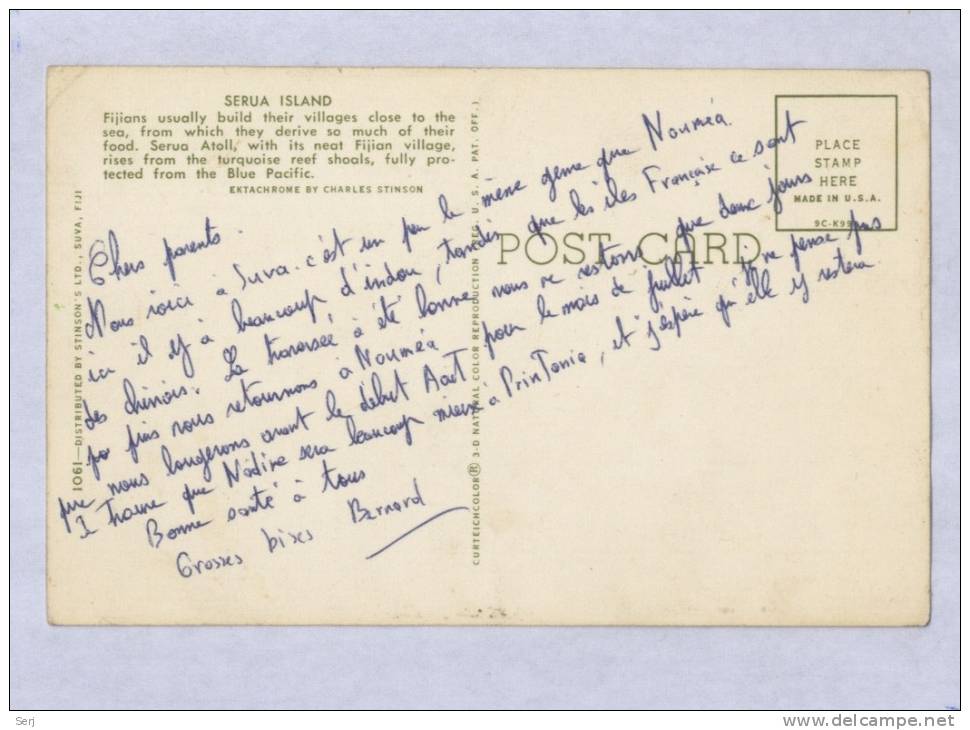 SERUA ISLAND
Fijians usually build their villages close to the
sea, from which they derive so much of their
food. Serua Atoll, with its neat Fijian village,
rises from the turquoise reef shoals, fully pro-
tected from the Blue Pacific.
EKTACHROME BY CHARLES STINSON
1061—DISTRIBUTED BY STINSON'S LTD., SUVA, FIJI
CURTEICHCOLOR® 3-D NATURAL COLOR REPRODUCTION (REG. U. S. A. PAT. OFF.)
POST CARD
PLACE
STAMP
HERE
MADE IN U.S.A.
9C-K99
Chers parents
Nous voici à Suva. c'est un peu le même genre que Nouméa.
ici il y à beaucoup d'indou, tandis que les iles Française ce sont
des chinois. La traversée à été bonne nous ne restons que deux jours
puis nous retournons à Nouméa pour le mois de Juillet
que nous bougerons avant le début Aout ne pense pas
que Nadine sera beaucoup mieux à PrinTania, et j'espère qu'elle y restera
Bonne santé à tous
Grosses bises Bernard
Serj
delcampe.net